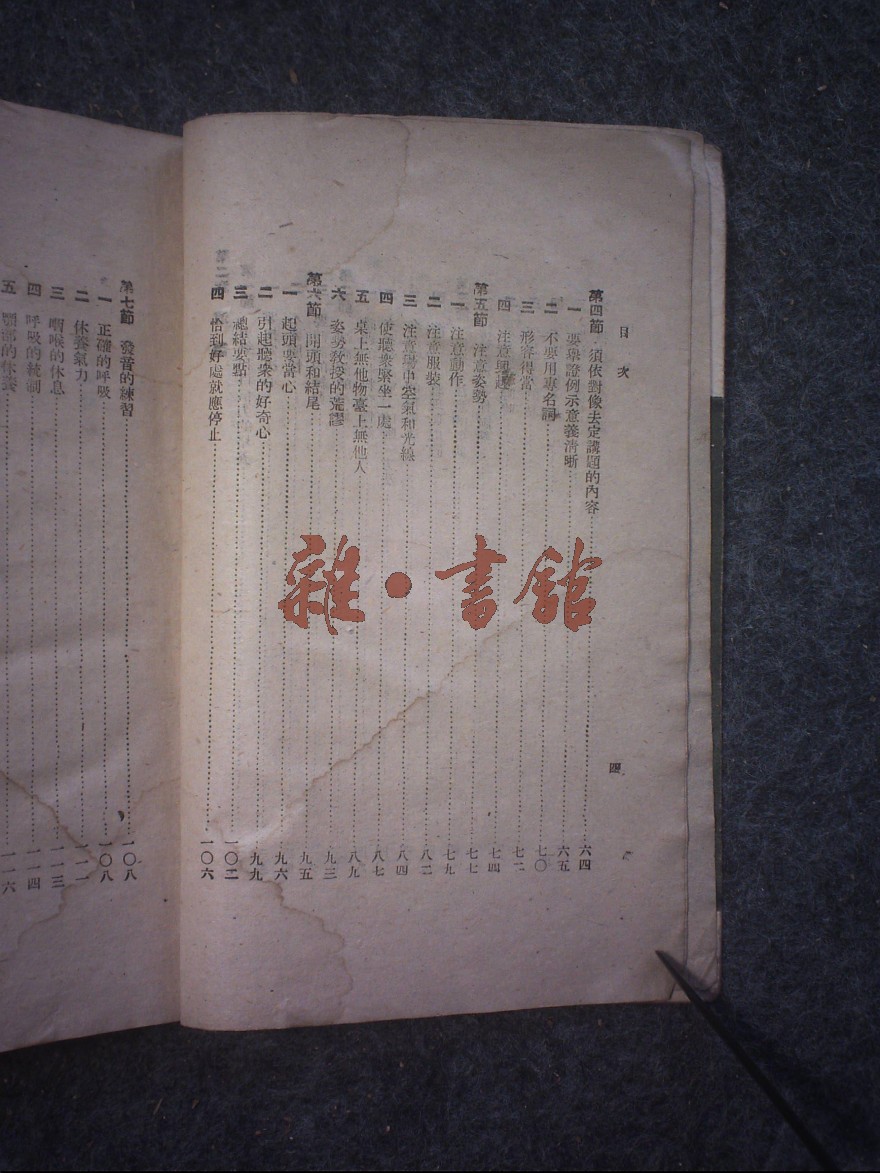 目次
四
第四節 須依對像去定講題的內容 六四
一 要舉證例示意義清晰 六五
二 不要用專名詞 七〇
三 形容得當 七二
四 注意興趣 七四
第五節 注意姿勢 七七
一 注意動作 七九
二 注意服裝 八二
三 注意場中空氣和光線 八四
四 使聽衆緊坐一處 八七
五 桌上無他物臺上無他人 八九
六 姿勢敎授的荒謬 九三
第六節 開頭和結尾 九五
一 起頭要當心 九六
二 引起聽衆的好奇心 九九
三 總結要點 一〇二
四 恰到好處就應停止 一〇六
第七節 發音的練習 一〇八
一 正確的呼吸 一〇八
二 休養氣力
三 咽喉的休息 一一三
四 呼吸的統制 一一四
五 顎部的休養 一一六
雜·書館